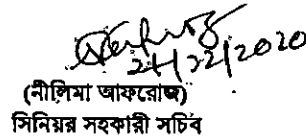 24/12/2020
(নীলিমা আফরোজ)
সিনিয়র সহকারী সচিব